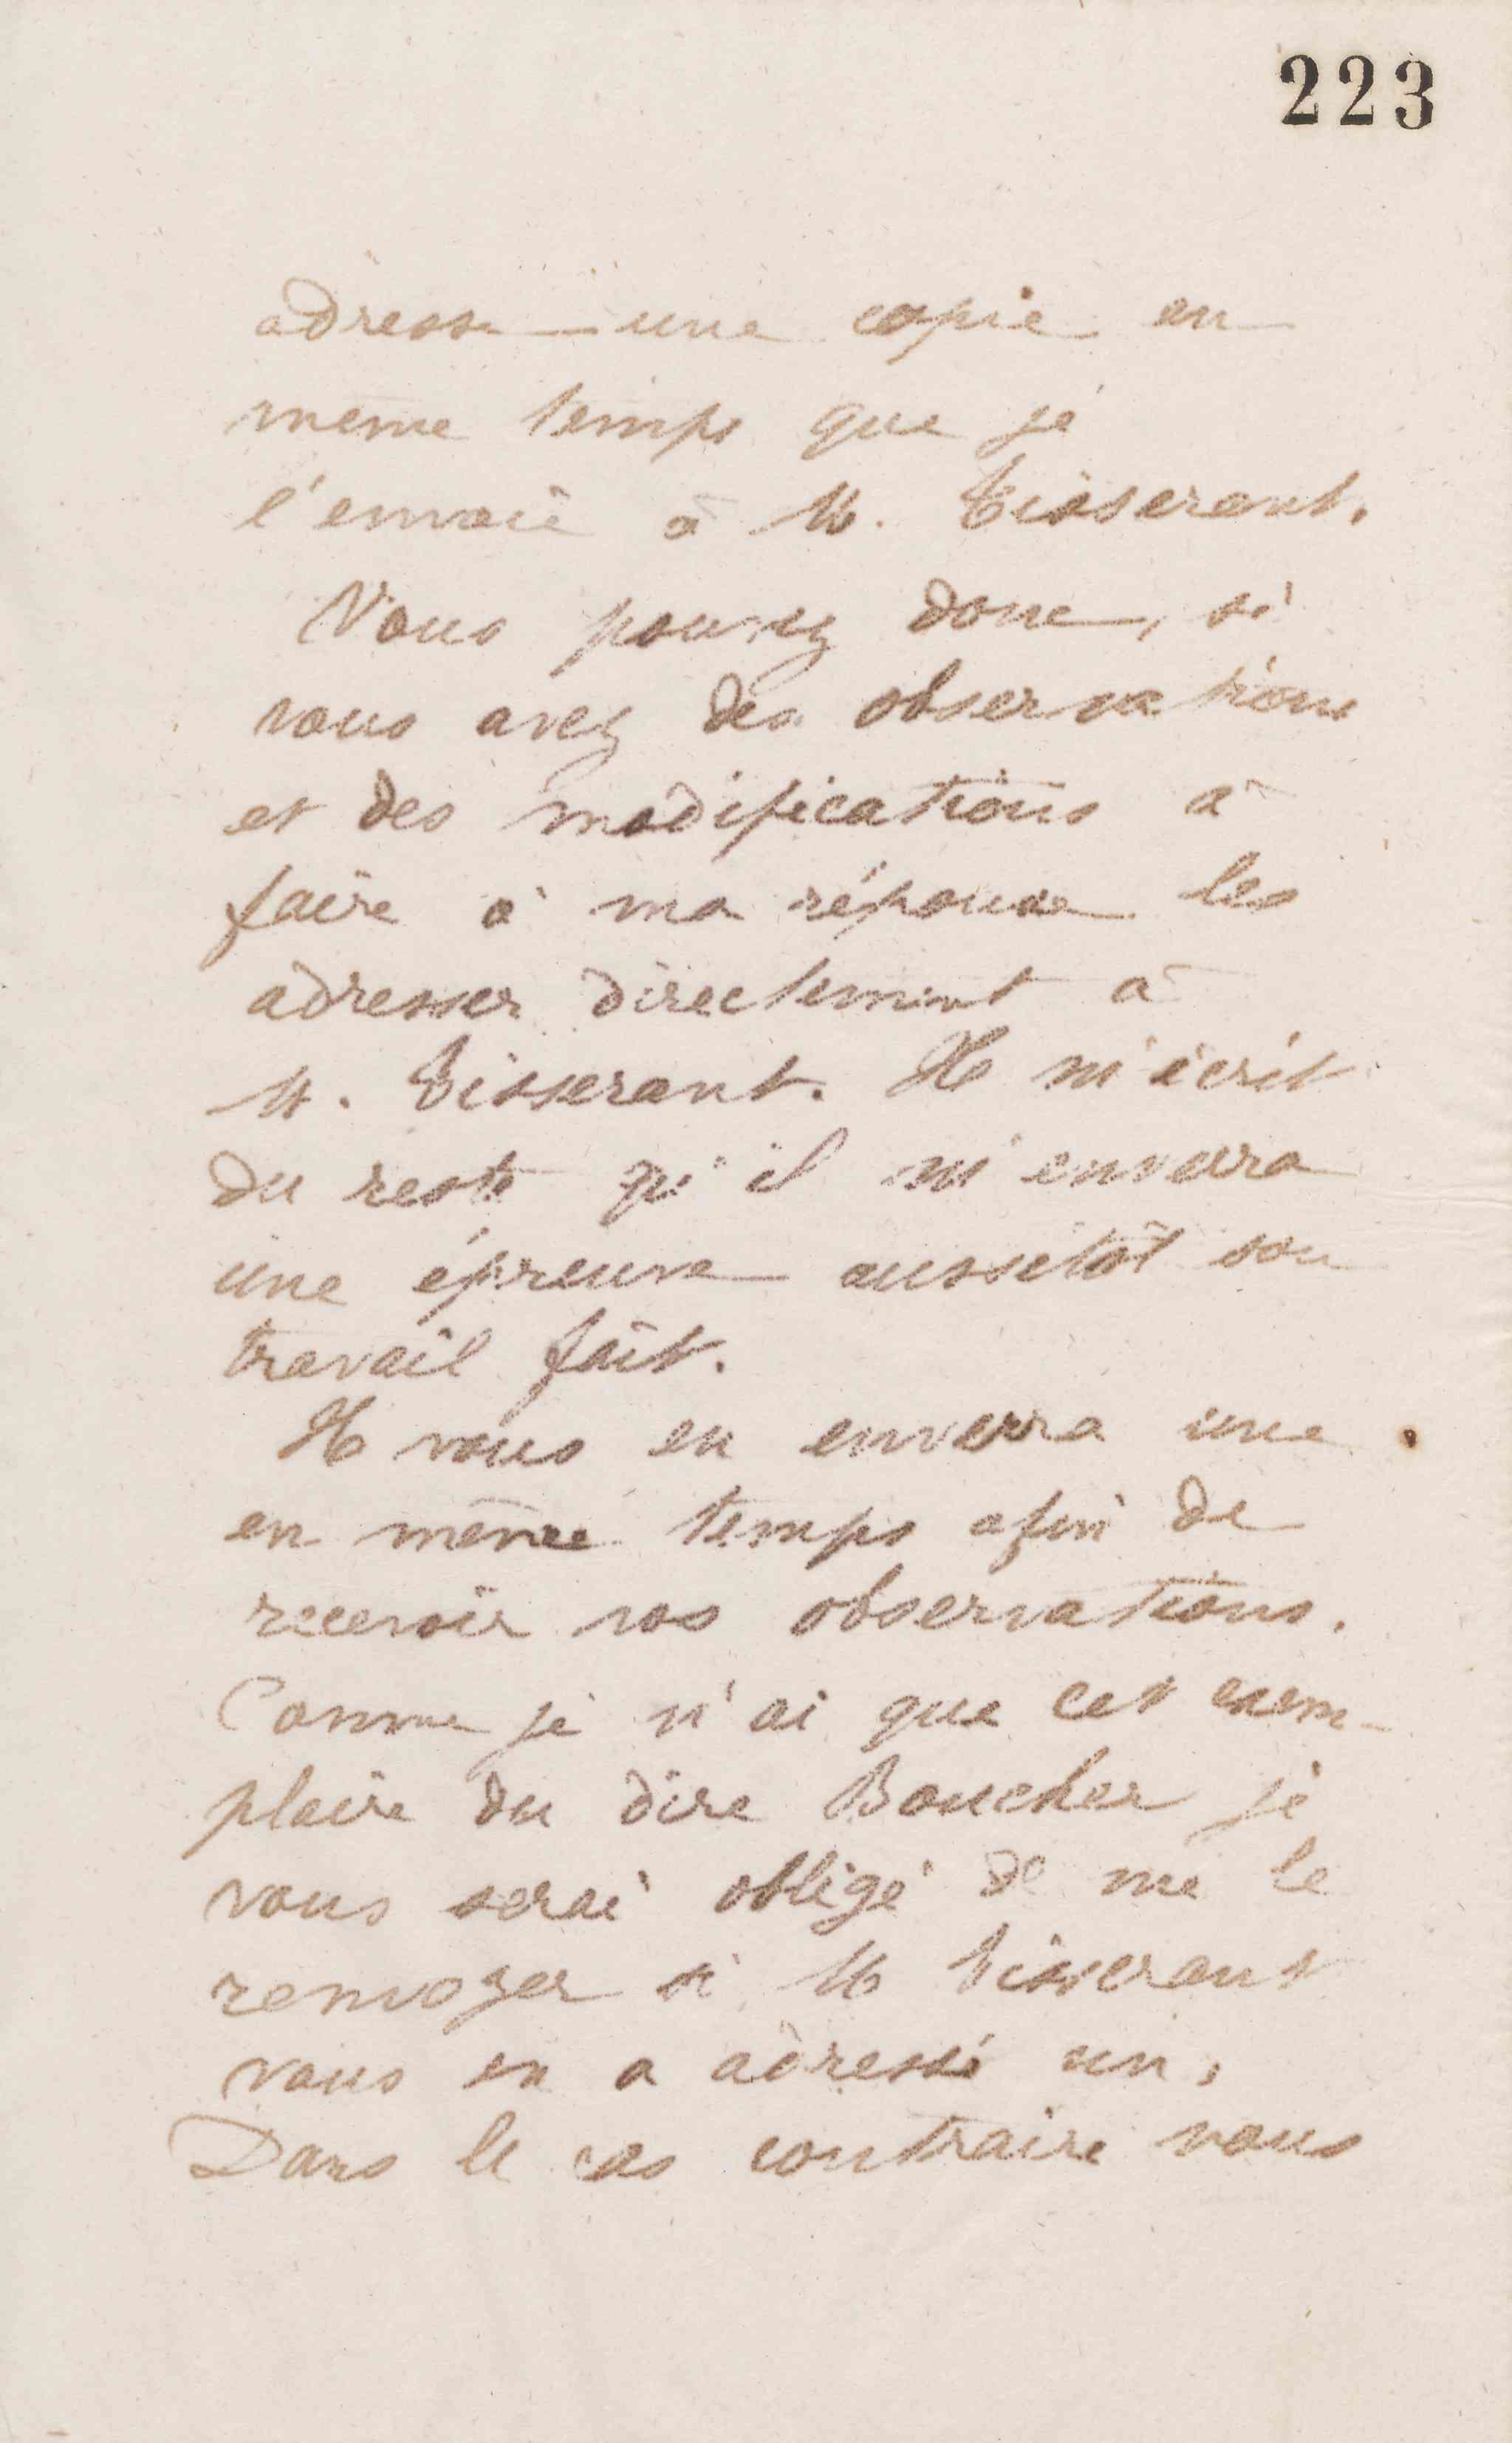 223
adresse une copie en
même temps que je
l'envoie à M. Tisserant.
Vous pouvez donc, si
vous avez des observations
et des modifications à
faire à ma réponse les
adresser directement à
M. Tisserant. Il m'écrit
du reste qu'il m'enverra
une épreuve aussitôt son
travail fait.
Il vous en enverra une
en même temps afin de
recevoir vos observations.
Comme je n'ai que cet exem-
plaire du dire Boucher je
vous serai obligé de me le
renvoyer si M Tisserant
vous en a adressé un,
Dans le cas contraire vous